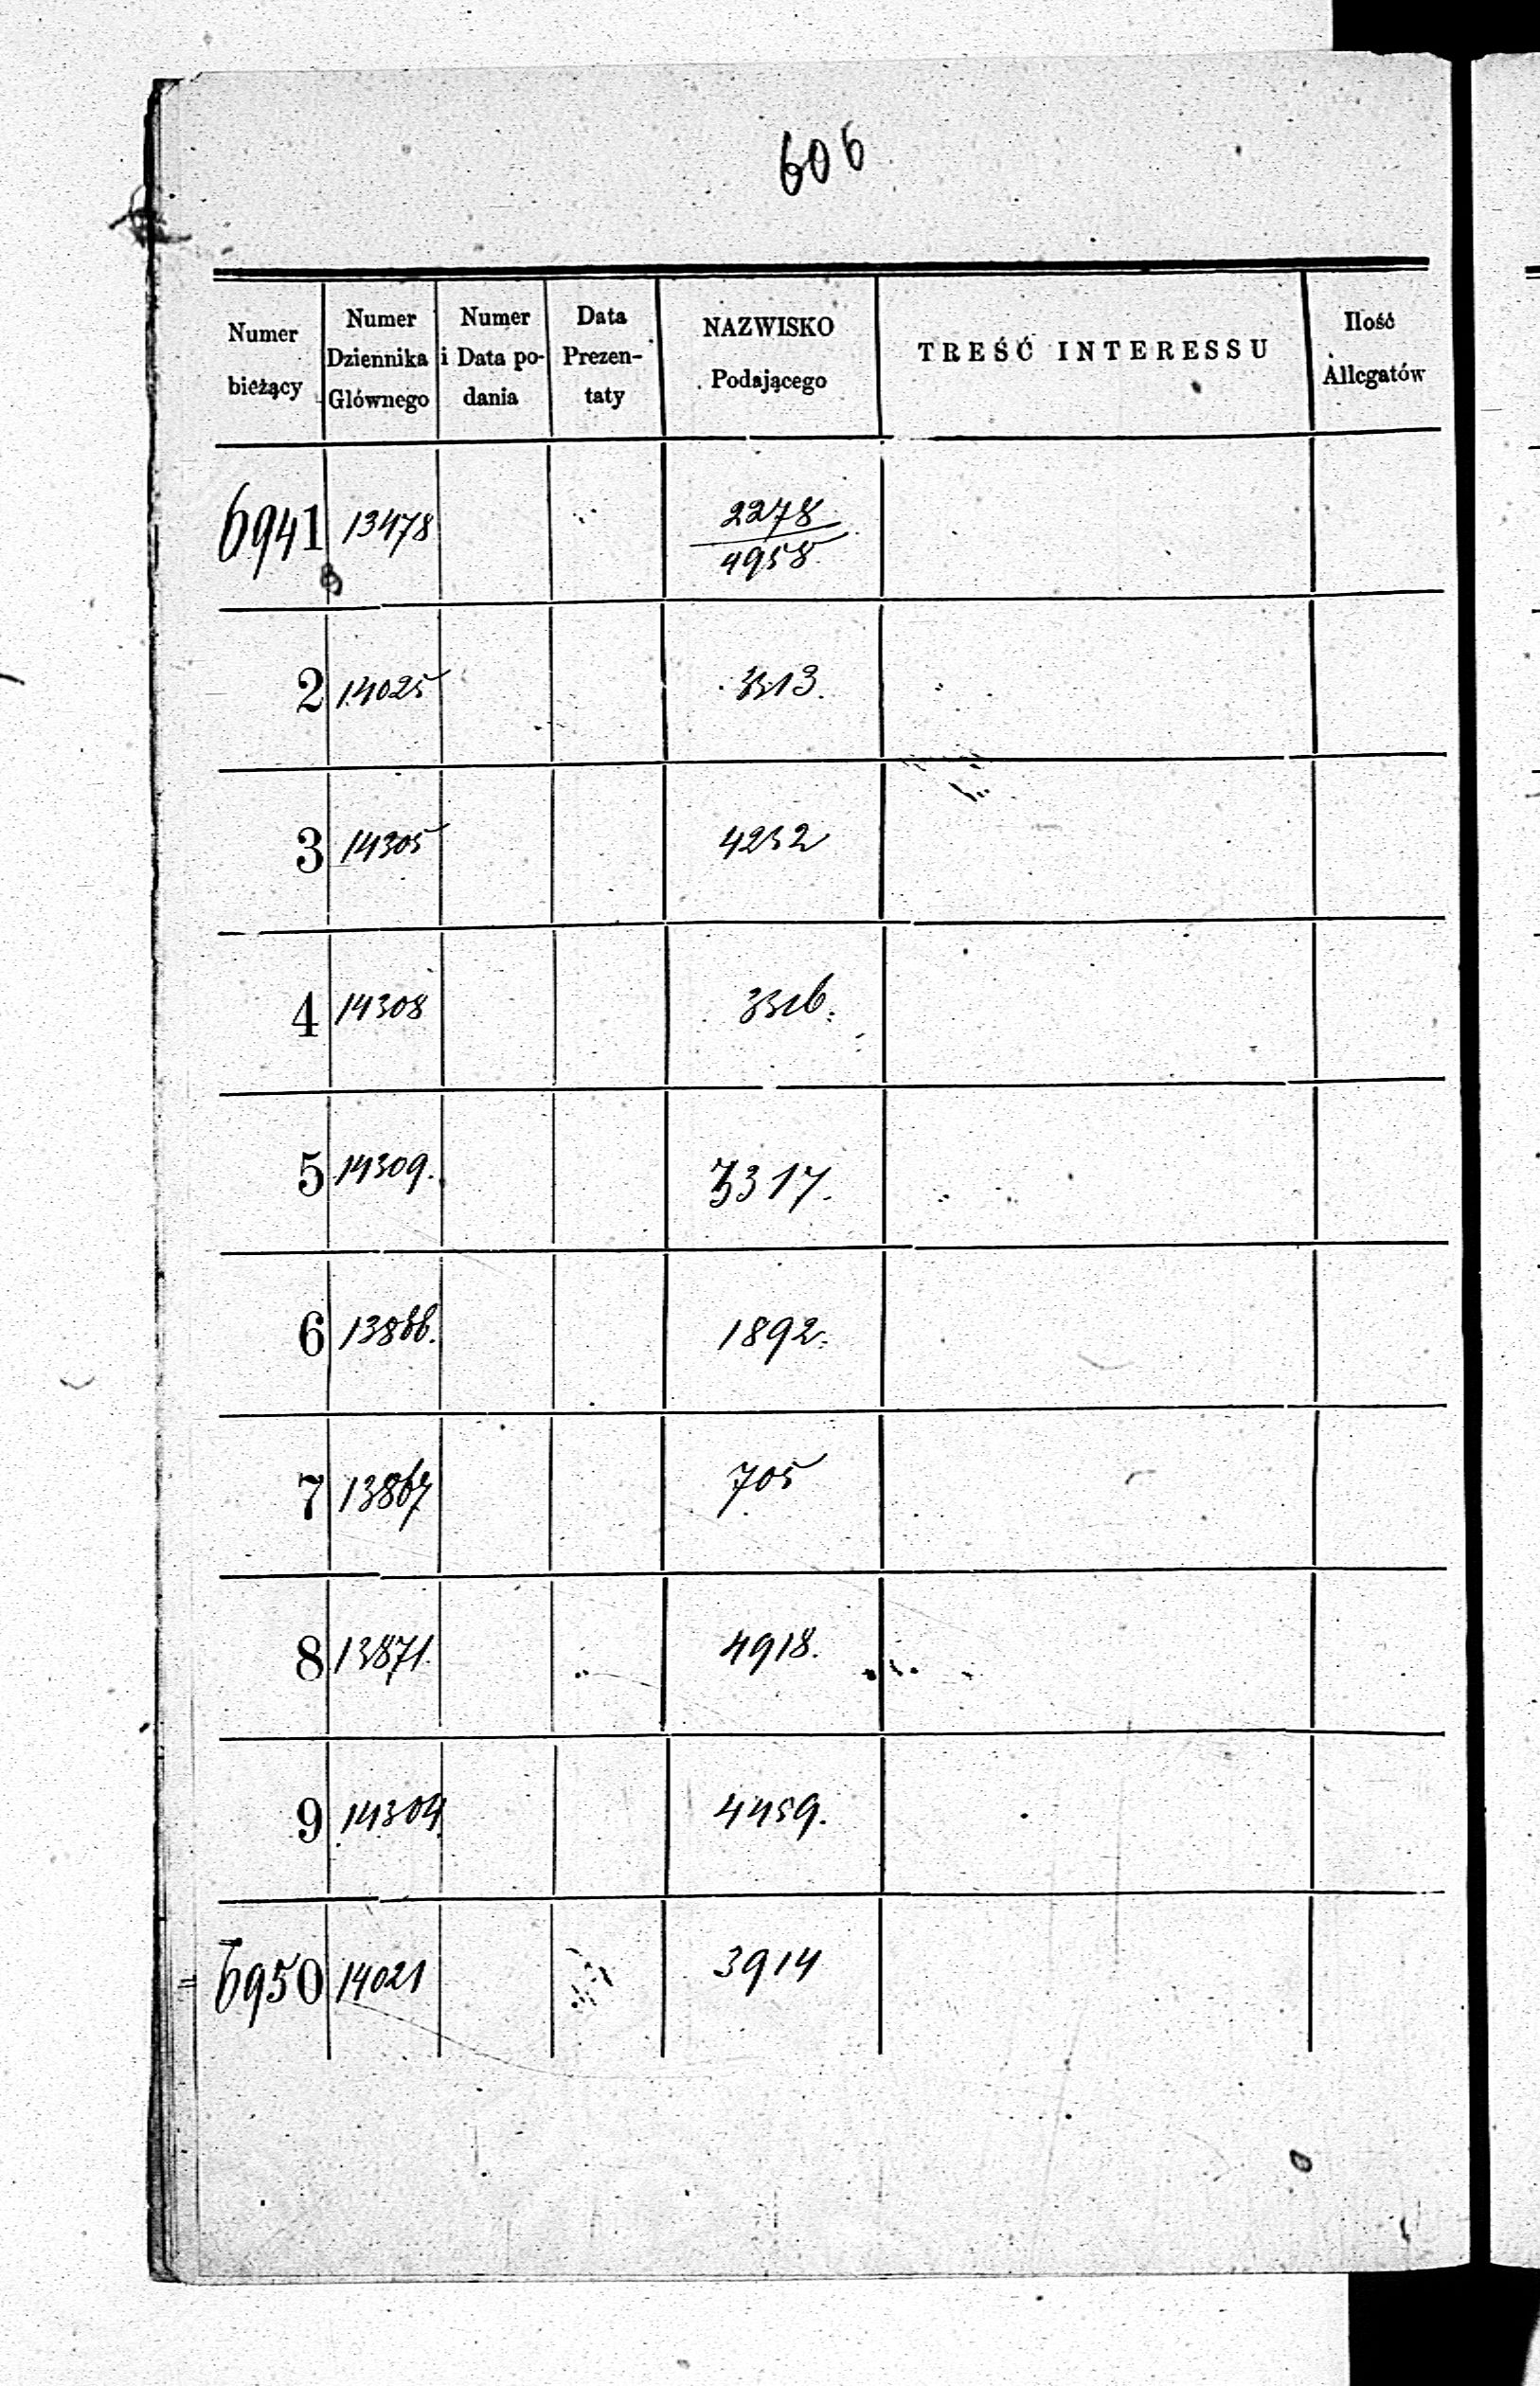 606
Numer bieżący | Numer Dziennika Głównego | Numer i Data podania | Data Prezentaty | NAZWISKO Podającego | TREŚĆ INTERESSU | Ilość Allegatów
6941 13478 2278
4958
2 14025 3313.
3 14305 4232
4 14308 3316.
5 14309. 3317.
6 13866. 1892.
7 13867 705
8 13871. 4918.
9 14304 4459.
6950 14021 3914